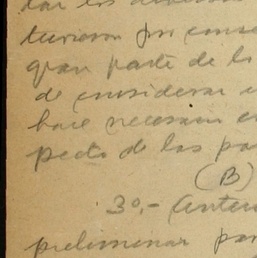 tar los
tuvieron por conse
gran parte de la
de considerar
hace necesario
pecto de las pa
(B)
3º.- Anter
preliminar par